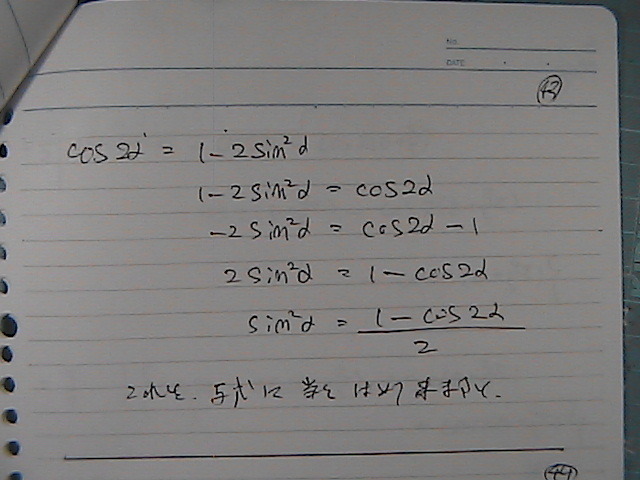 No.
DATE
42
cos2α = 1 - 2sin²α
1 - 2sin²α = cos2α
-2sin²α = cos2α - 1
2sin²α = 1 - cos2α
sin²α = (1 - cos2α)/2
これを、与式に当てはめ
44